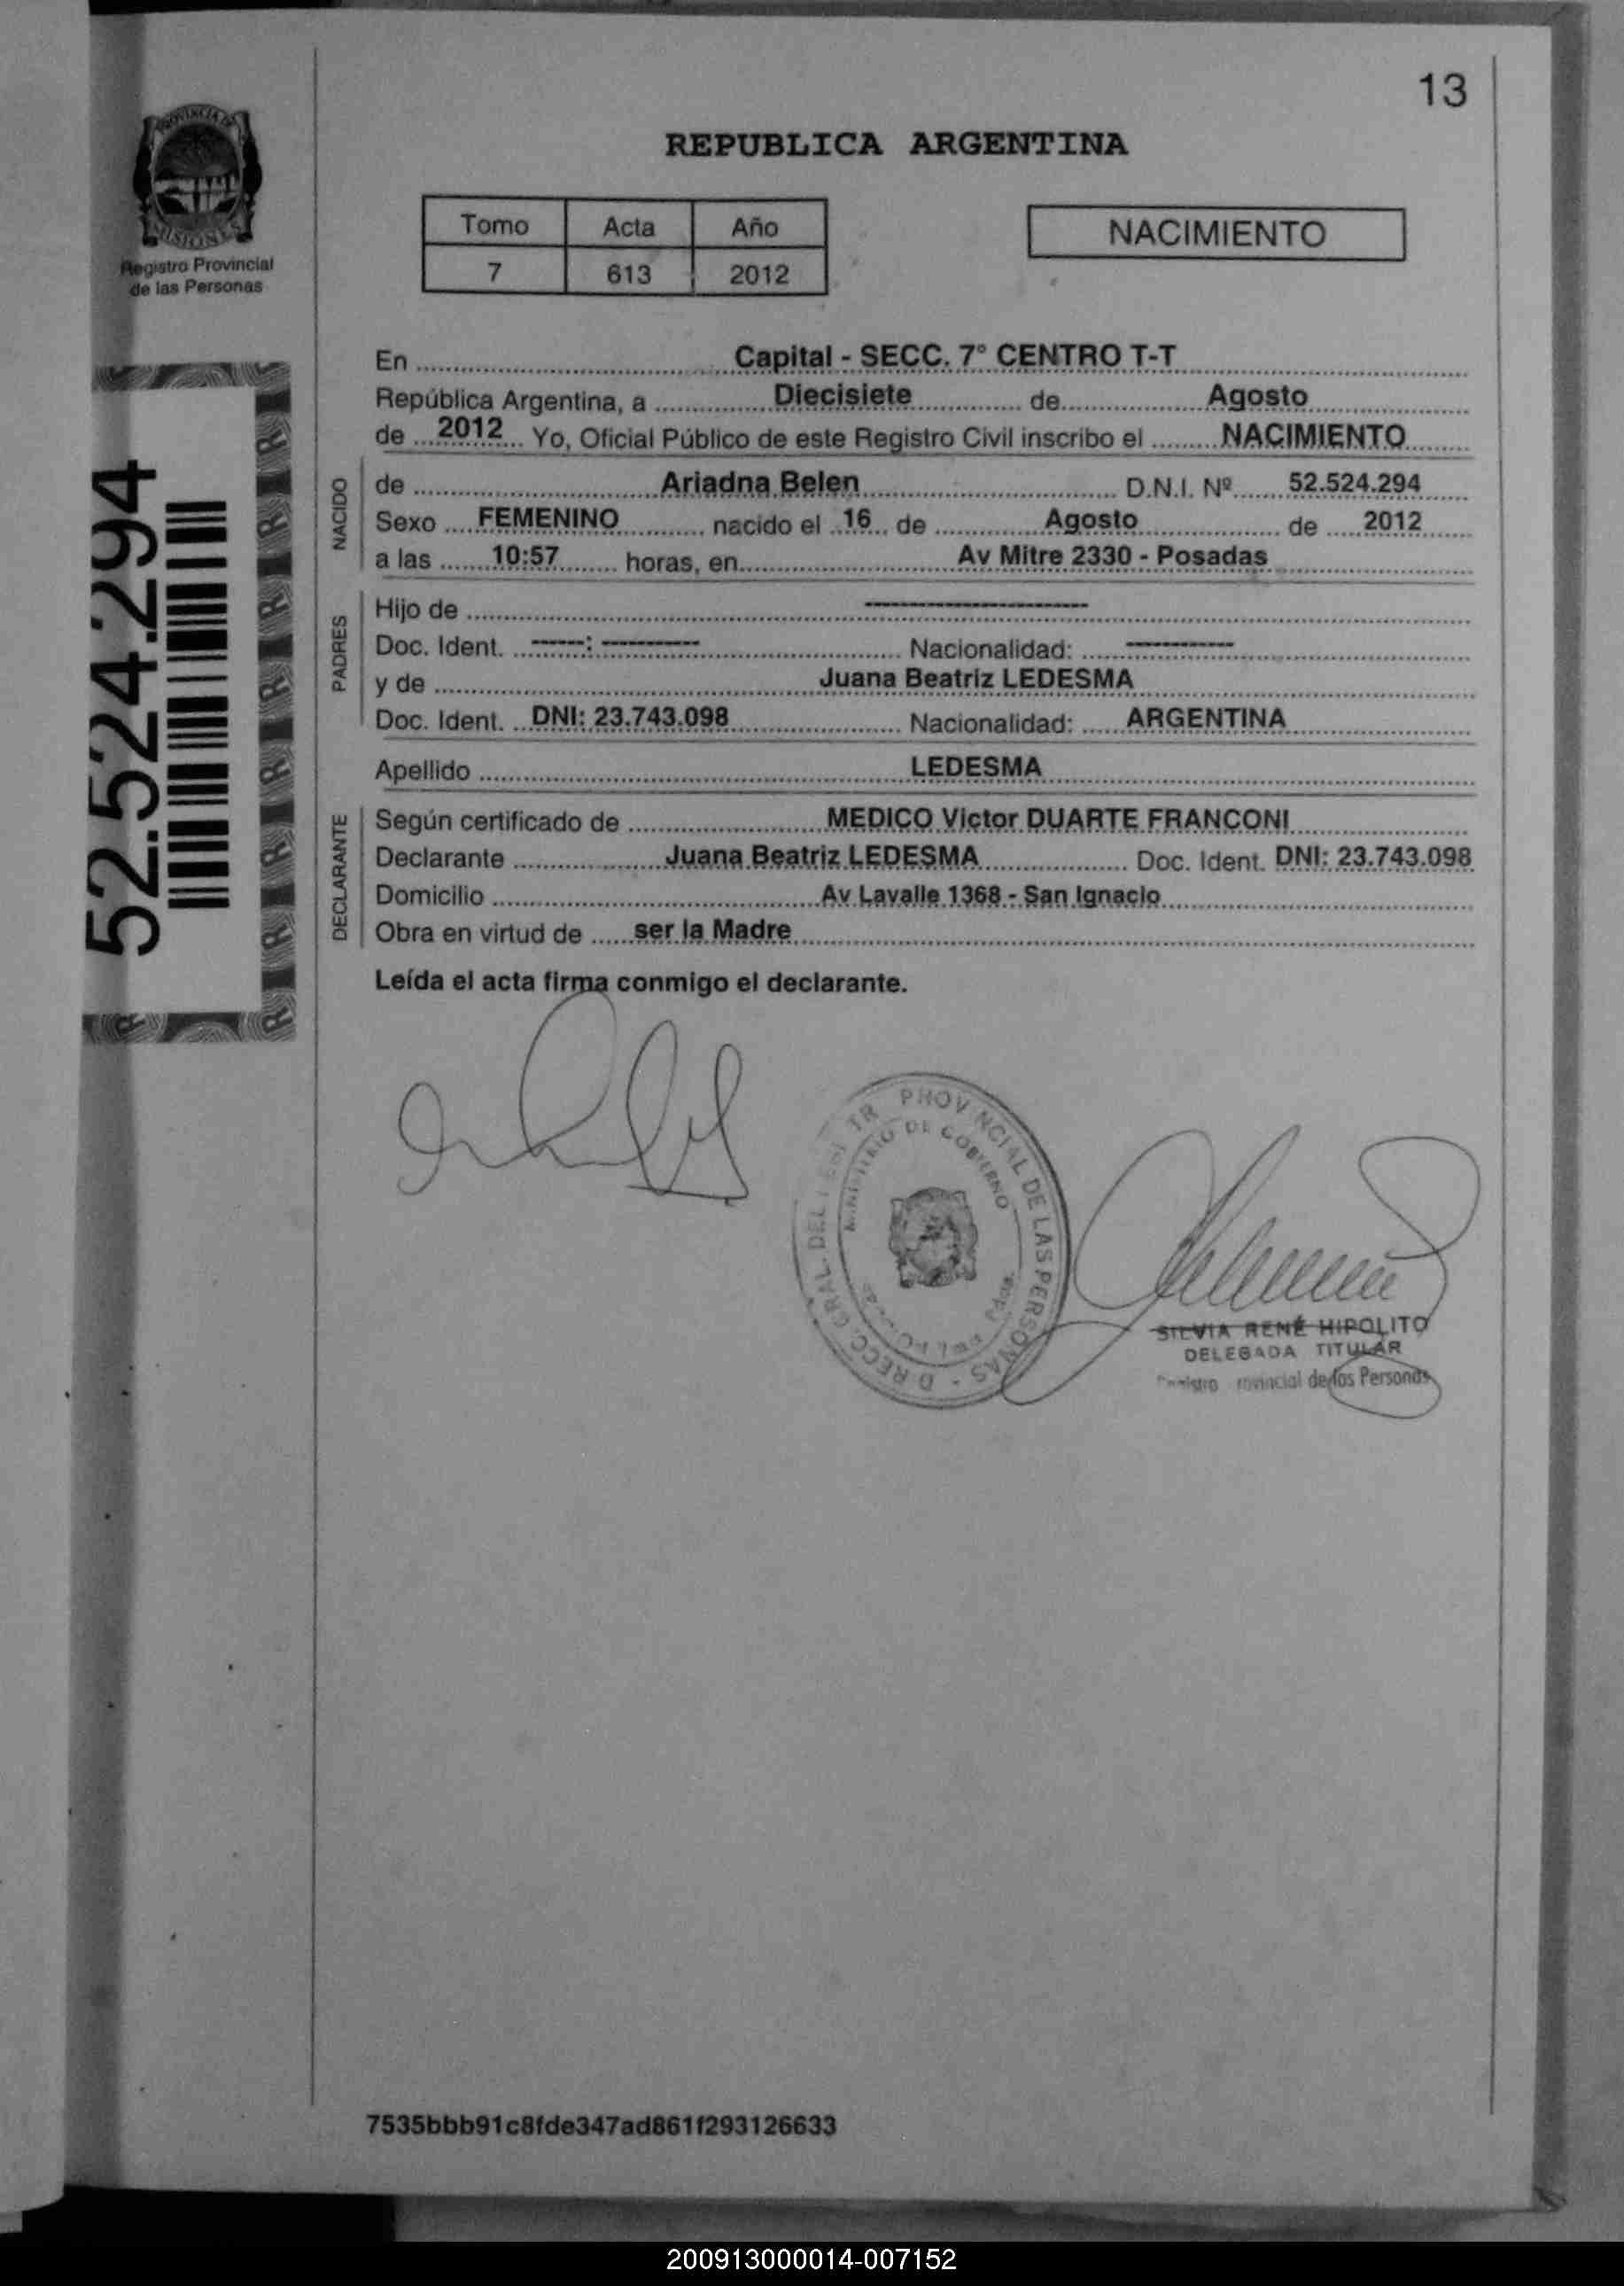 13
PROVINCIA DE
MISIONES
Registro Provincial
de las Personas
REPUBLICA ARGENTINA
Tomo Acta Año
7 613 2012
NACIMIENTO
52.524.294
En Capital - SECC. 7° CENTRO T-T
República Argentina, a Diecisiete de Agosto
de 2012 Yo, Oficial Público de este Registro Civil inscribo el NACIMIENTO
NACIDO
de Ariadna Belen D.N.I. Nº 52.524.294
Sexo FEMENINO nacido el 16 de Agosto de 2012
a las 10:57 horas, en Av Mitre 2330 - Posadas
PADRES
Hijo de ----------
Doc. Ident. -----: --------- Nacionalidad: ----------
y de Juana Beatriz LEDESMA
Doc. Ident. DNI: 23.743.098 Nacionalidad: ARGENTINA
Apellido LEDESMA
DECLARANTE
Según certificado de MEDICO Victor DUARTE FRANCONI
Declarante Juana Beatriz LEDESMA Doc. Ident. DNI: 23.743.098
Domicilio Av Lavalle 1368 - San Ignacio
Obra en virtud de ser la Madre
Leída el acta firma conmigo el declarante.
PROVINCIAL DE LAS PERSONAS
MINISTERIO DE GOBIERNO
SILVIA RENÉ HIPOLITO
DELEGADA TITULAR
de las Personas
7535bbb91c8fde347ad861f293126633
200913000014-007152